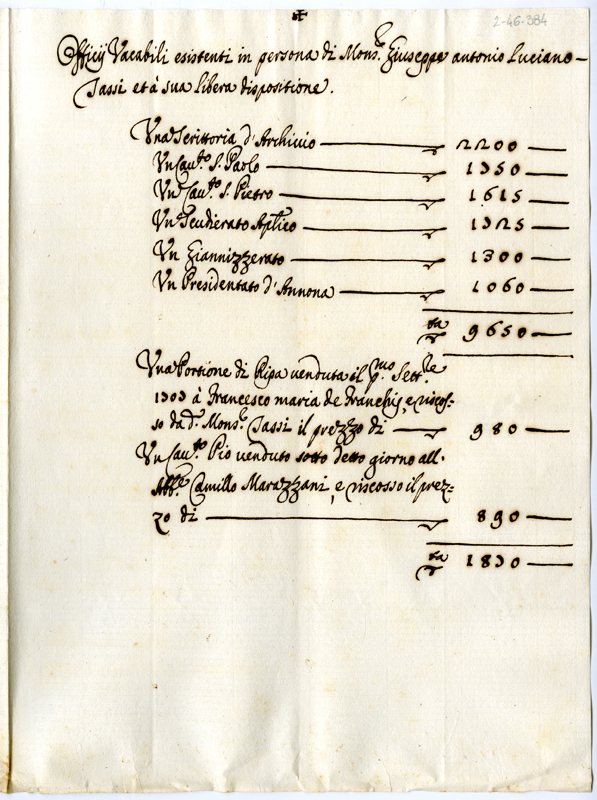 ✠
2-46-384
Officij Vacabili esistenti in persona di Mons.re Giuseppe antonio Luciano
Tassi et à sua libera dispositione.
Una Scrittoria d'Archivio 2200
Un Cau.to S. Paolo 1750
Un Cau.to S. Pietro 1615
Un Scudierato Ap.lico 1725
Un Giannizzerato 1300
Un Presidentato d'Annona 1060
9650
Una Portione di Ripa venduta il p.mo Sett.re
1707 à Francesco maria de Franchis, e riscos-
so da d.o Mons.re Tassi il prezzo di 980
Un Cau.to Pio venduto sotto detto giorno all'
Abb.e Camillo Marazzani, e riscosso il prez-
zo di 890
1870